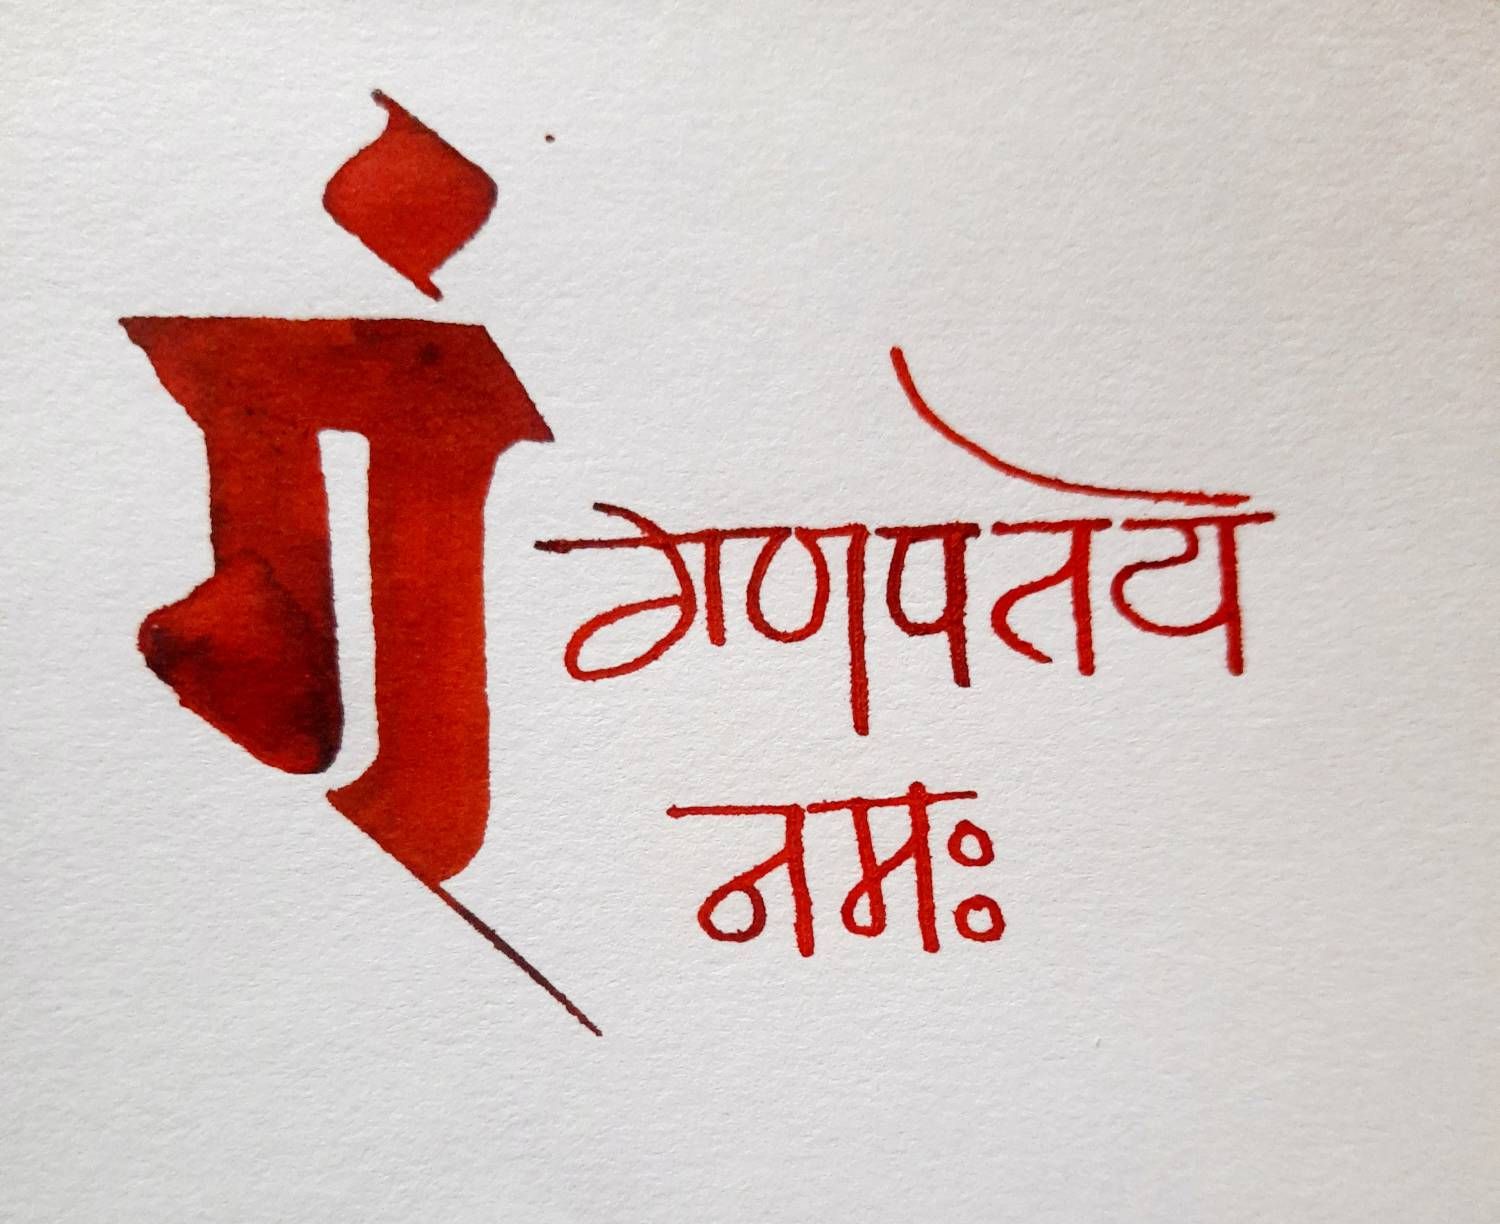 गं
गणपतये
नमः